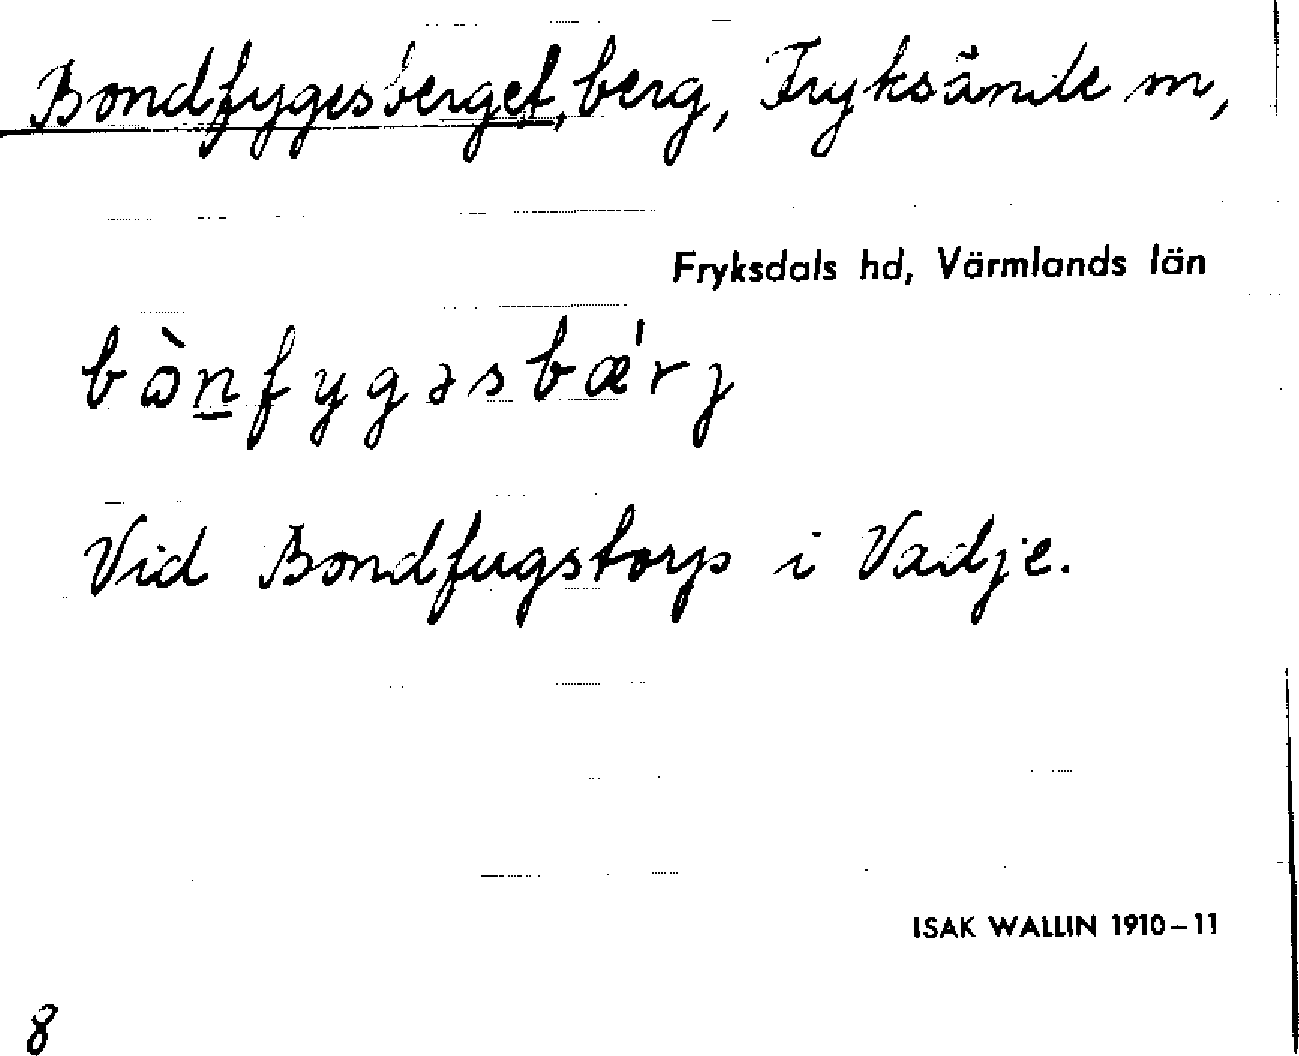 Bondfygesberget, berg, Fryksände sn,
Fryksdals hd, Värmlands län
bɷ̀n̲fygəsbǽrj
Vid Bondfugstorp i Vadje.
ISAK WALLIN 1910–11
8